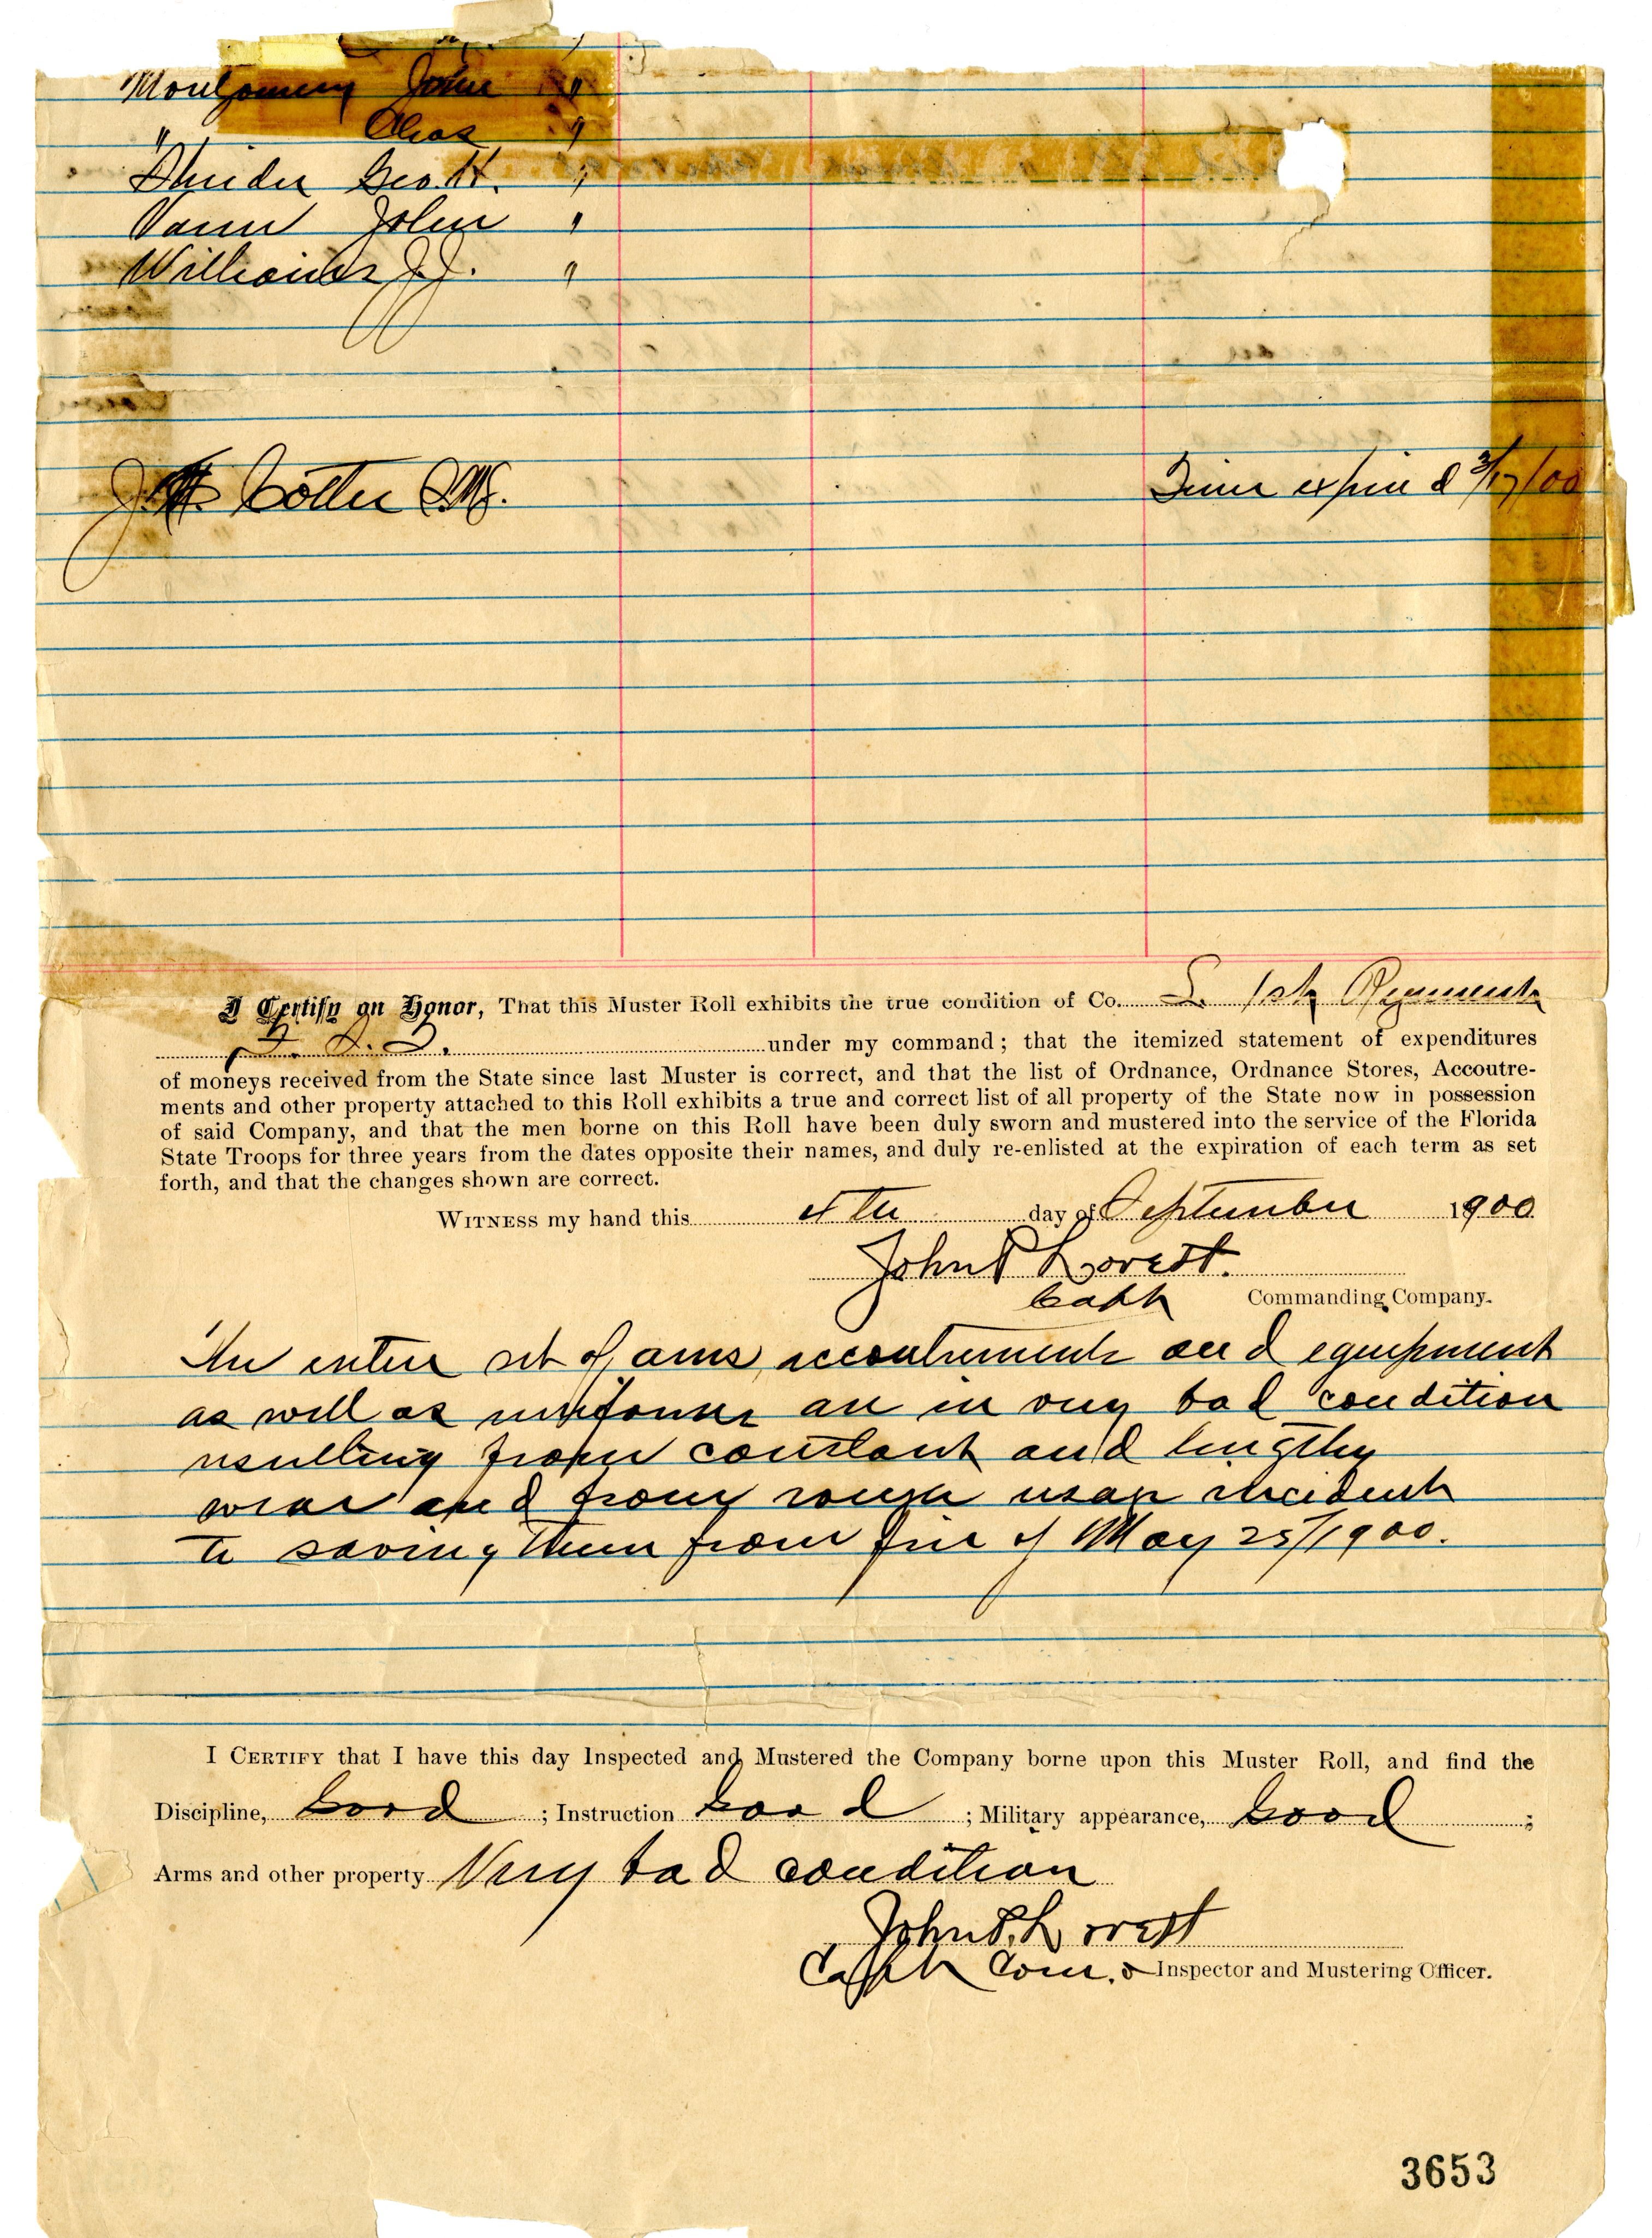 Montgomery John "
" Chas "
Shrider Geo. H. "
Vann John "
Williams J. J. "
J. H. Cotter Q.M.S. Time expired 3/17/00
I Certify on Honor, That this Muster Roll exhibits the true condition of Co. L. 1st Regiment
F. S. T. under my command; that the itemized statement of expenditures
of moneys received from the State since last Muster is correct, and that the list of Ordnance, Ordnance Stores, Accoutre-
ments and other property attached to this Roll exhibits a true and correct list of all property of the State now in possession
of said Company, and that the men borne on this Roll have been duly sworn and mustered into the service of the Florida
State Troops for three years from the dates opposite their names, and duly re-enlisted at the expiration of each term as set
forth, and that the changes shown are correct.
WITNESS my hand this day of September 1900
John P. Lovest.
Capt Commanding Company.
The entire set of arms, accoutrements and equipment
as well as uniforms are in very bad condition
resulting from constant and lengthy
wear and from rough usage incident
to saving them from fire of May 25/1900.
I CERTIFY that I have this day Inspected and Mustered the Company borne upon this Muster Roll, and find the
Discipline, Good ; Instruction Good ; Military appearance, Good ;
Arms and other property Very bad condition
John P. Lovest
Capt Com. & Inspector and Mustering Officer.
3653